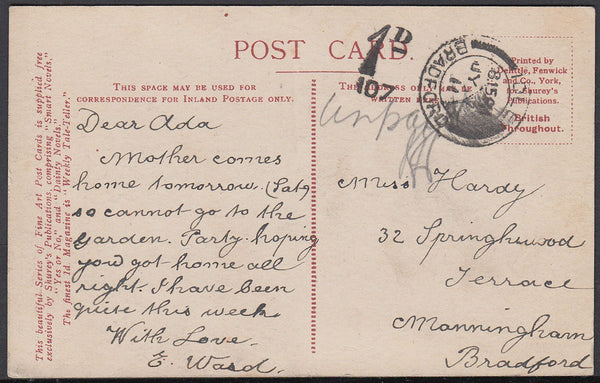 POST CARD.
THIS SPACE MAY BE USED FOR
CORRESPONDENCE FOR INLAND POSTAGE ONLY.
THE ADDRESS ONLY MAY BE
WRITTEN HERE
1D
107
BRADFORD
8.15 PM
JY 11
Printed by
Delittle, Fenwick
and Co., York,
for Shurey's
Publications.
British
Throughout.
This beautiful Series of Fine Art Post Cards is supplied free
exclusively by Shurey's Publications, comprising "Smart Novels,"
"Yes or No," and "Dainty Novels."
The finest 1d Magazine is "Weekly Tale-Teller."
Dear Ada
Mother comes
home tomorrow (Sat)
so cannot go to the
Garden. Party. hoping
you'd got home all
right. I have been
quite this week
With Love.
E. Ward.
Unpaid
Miss Hardy
32 Springhwood
Terrace
Manningham
Bradford